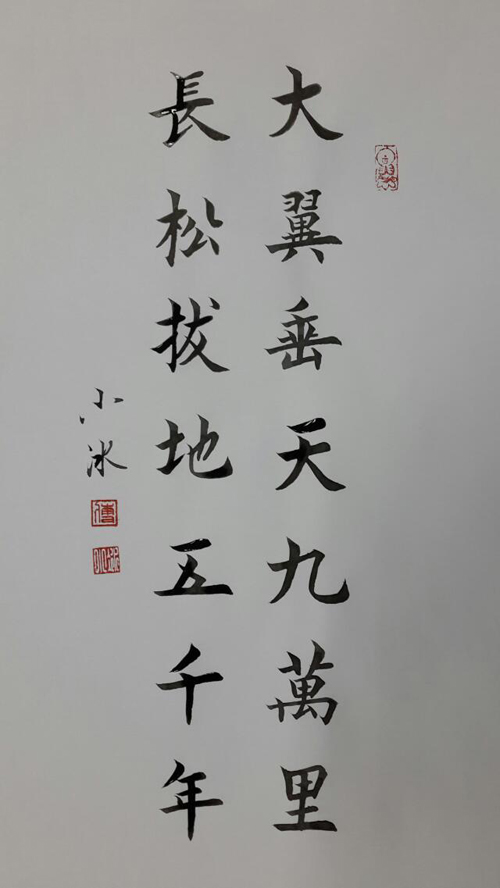 大翼垂天九萬里
長松拔地五千年
小冰